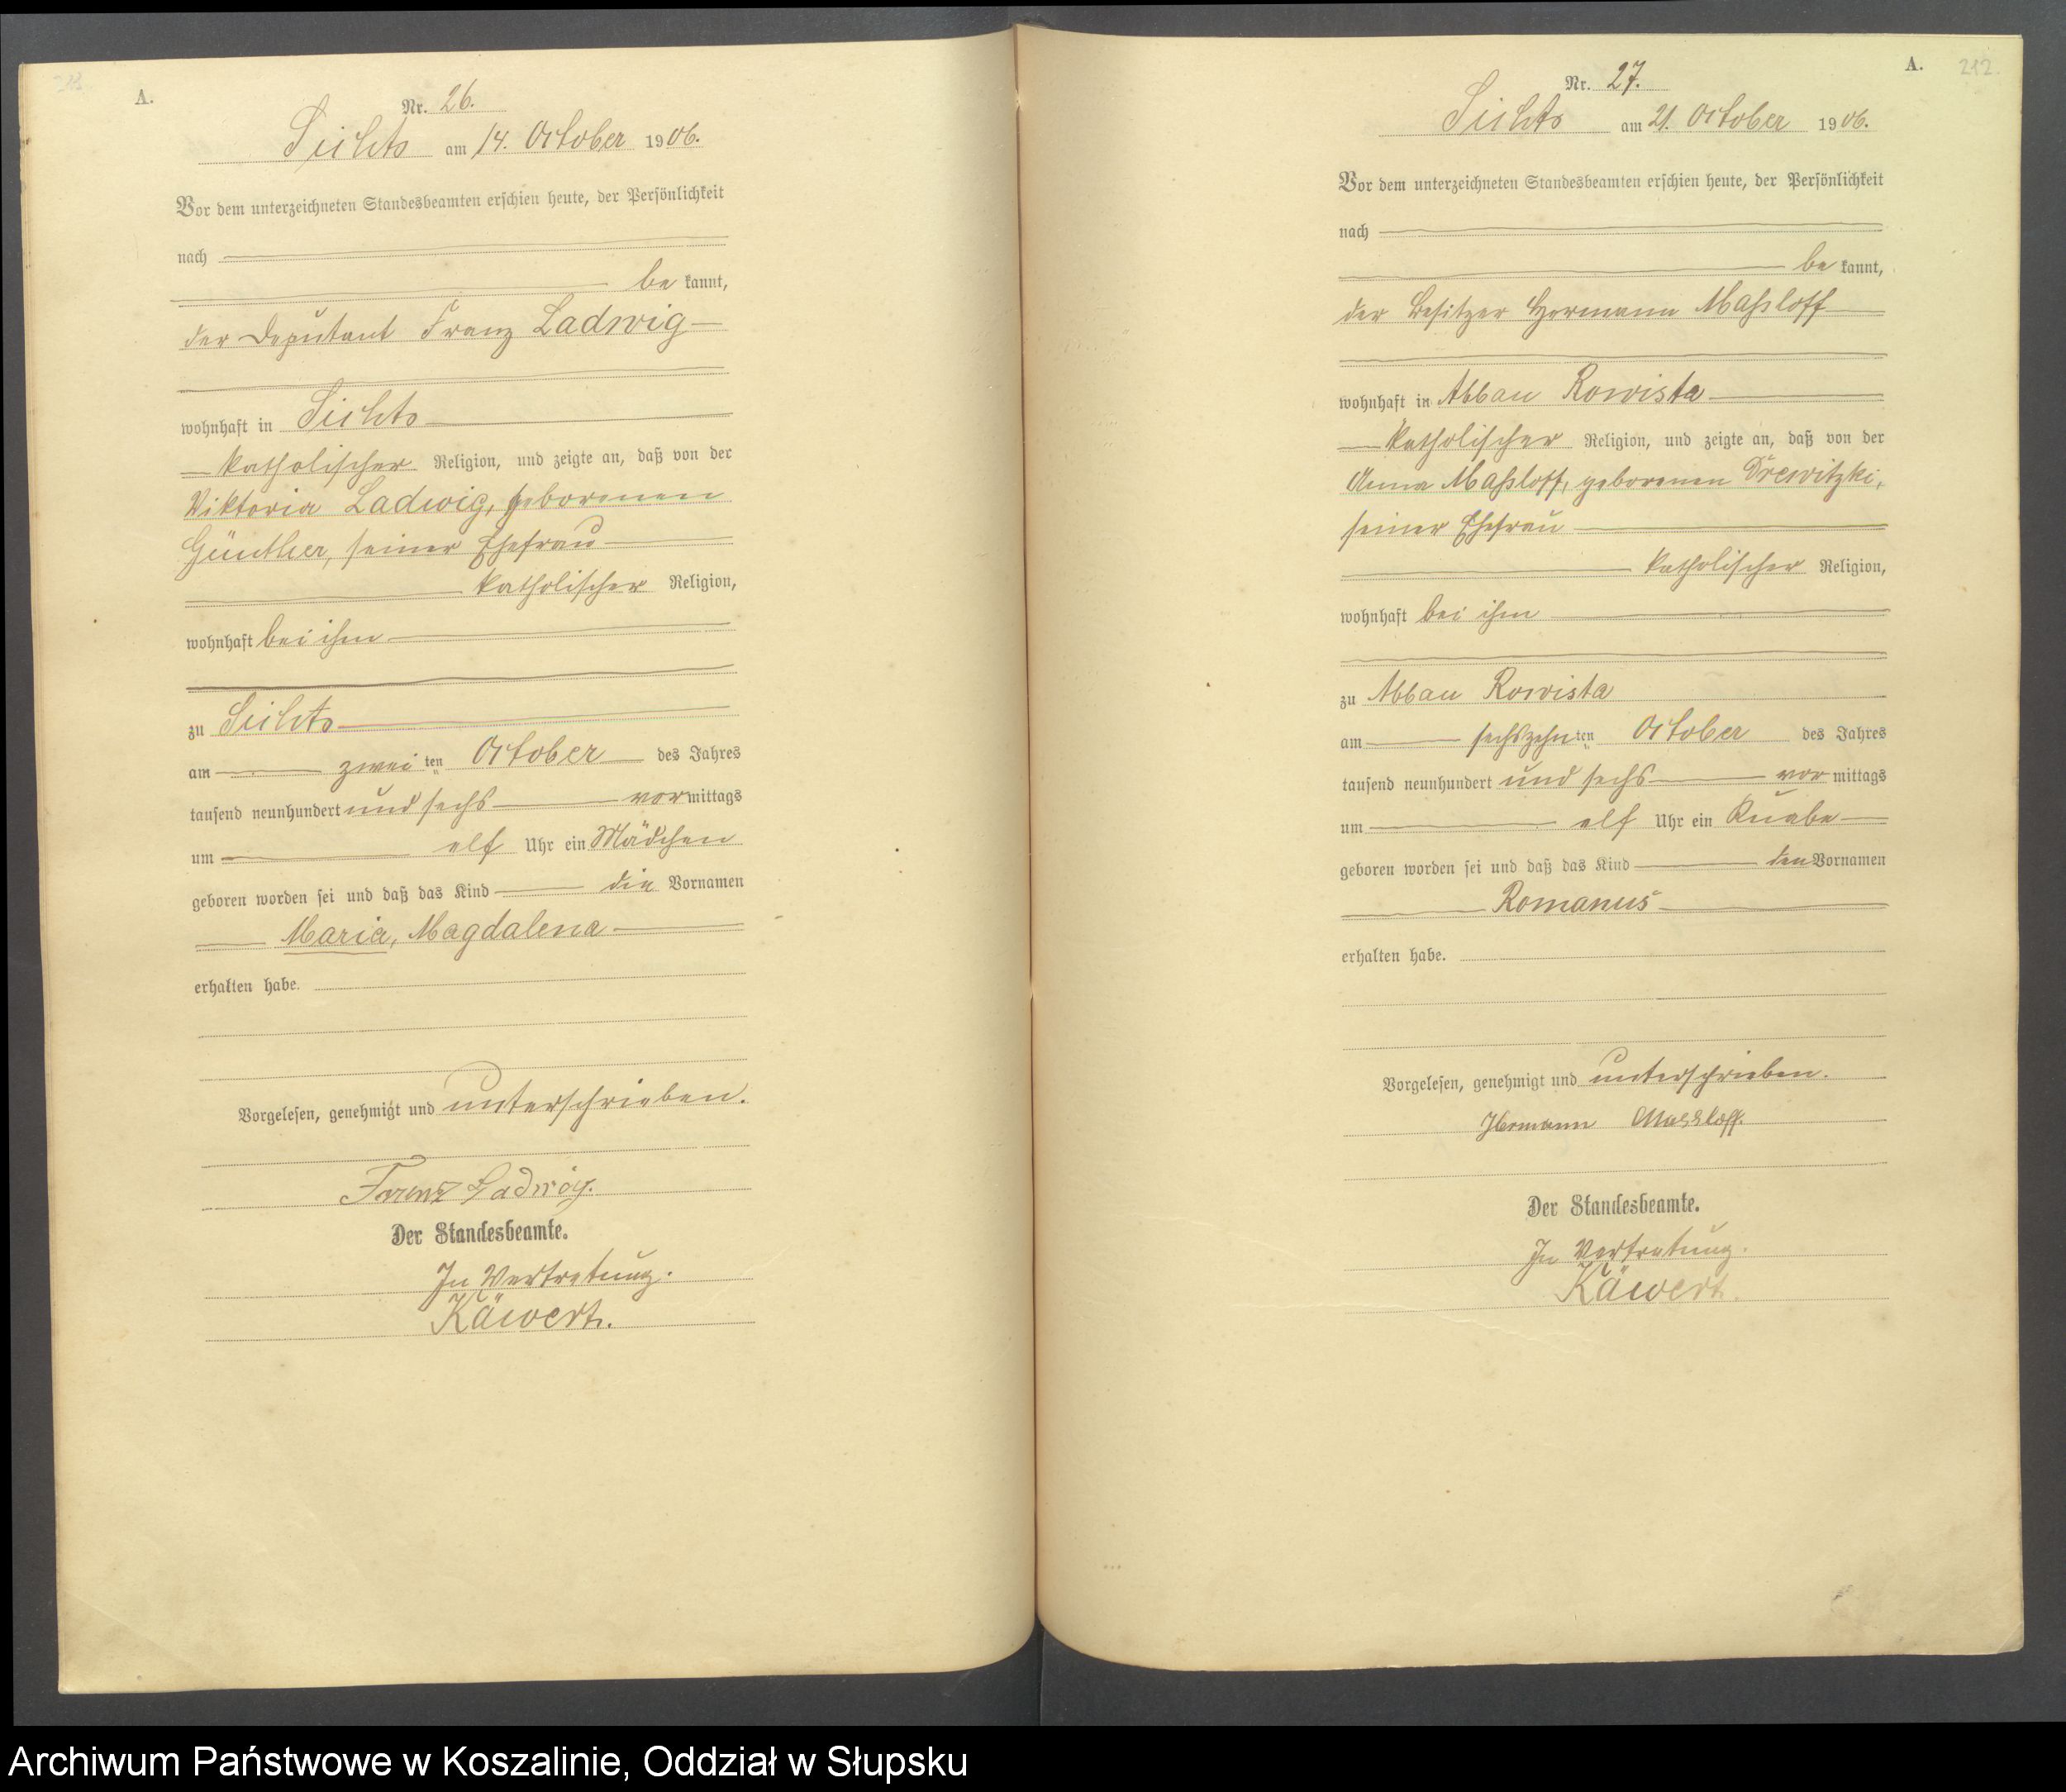 A.
Nr. 26.
Sichts am 14. October 1906.
Vor dem unterzeichneten Standesbeamten erschien heute, der Persönlichkeit
nach
be kannt,
der Deputant Franz Ladwig
wohnhaft in Sichts
katholischer Religion, und zeigte an, daß von der
Viktoria Ladwig, geborenen
Günther, seiner Ehefrau
katholischer Religion,
wohnhaft bei ihm
zu Sichts
am zweiten October des Jahres
tausend neunhundert und sechs vormittags
um elf Uhr ein Mädchen
geboren worden sei und daß das Kind die Vornamen
Maria, Magdalena
erhalten habe.
Vorgelesen, genehmigt und unterschrieben.
Franz Ladwig.
Der Standesbeamte.
In Vertretung.
Käwert.
A. 212.
Nr. 27.
Sichts am 21. October 1906.
Vor dem unterzeichneten Standesbeamten erschien heute, der Persönlichkeit
nach
be kannt,
der Besitzer Hermann Maßloff
wohnhaft in Abbau Rowista
katholischer Religion, und zeigte an, daß von der
Anna Maßloff, geborenen Drewitzki,
seiner Ehefrau
katholischer Religion,
wohnhaft bei ihm
zu Abbau Rowista
am sechszehnten October des Jahres
tausend neunhundert und sechs vor mittags
um elf Uhr ein Knabe
geboren worden sei und daß das Kind den Vornamen
Romanus
erhalten habe.
Vorgelesen, genehmigt und unterschrieben.
Hermann Massloff.
Der Standesbeamte.
In Vertretung.
Käwert.
Archiwum Państwowe w Koszalinie, Oddział w Słupsku